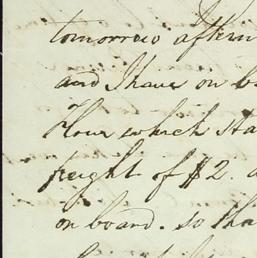 tomorrow aftern
and I have on b
Flour which sta
freight of $2. a
on board. so tha